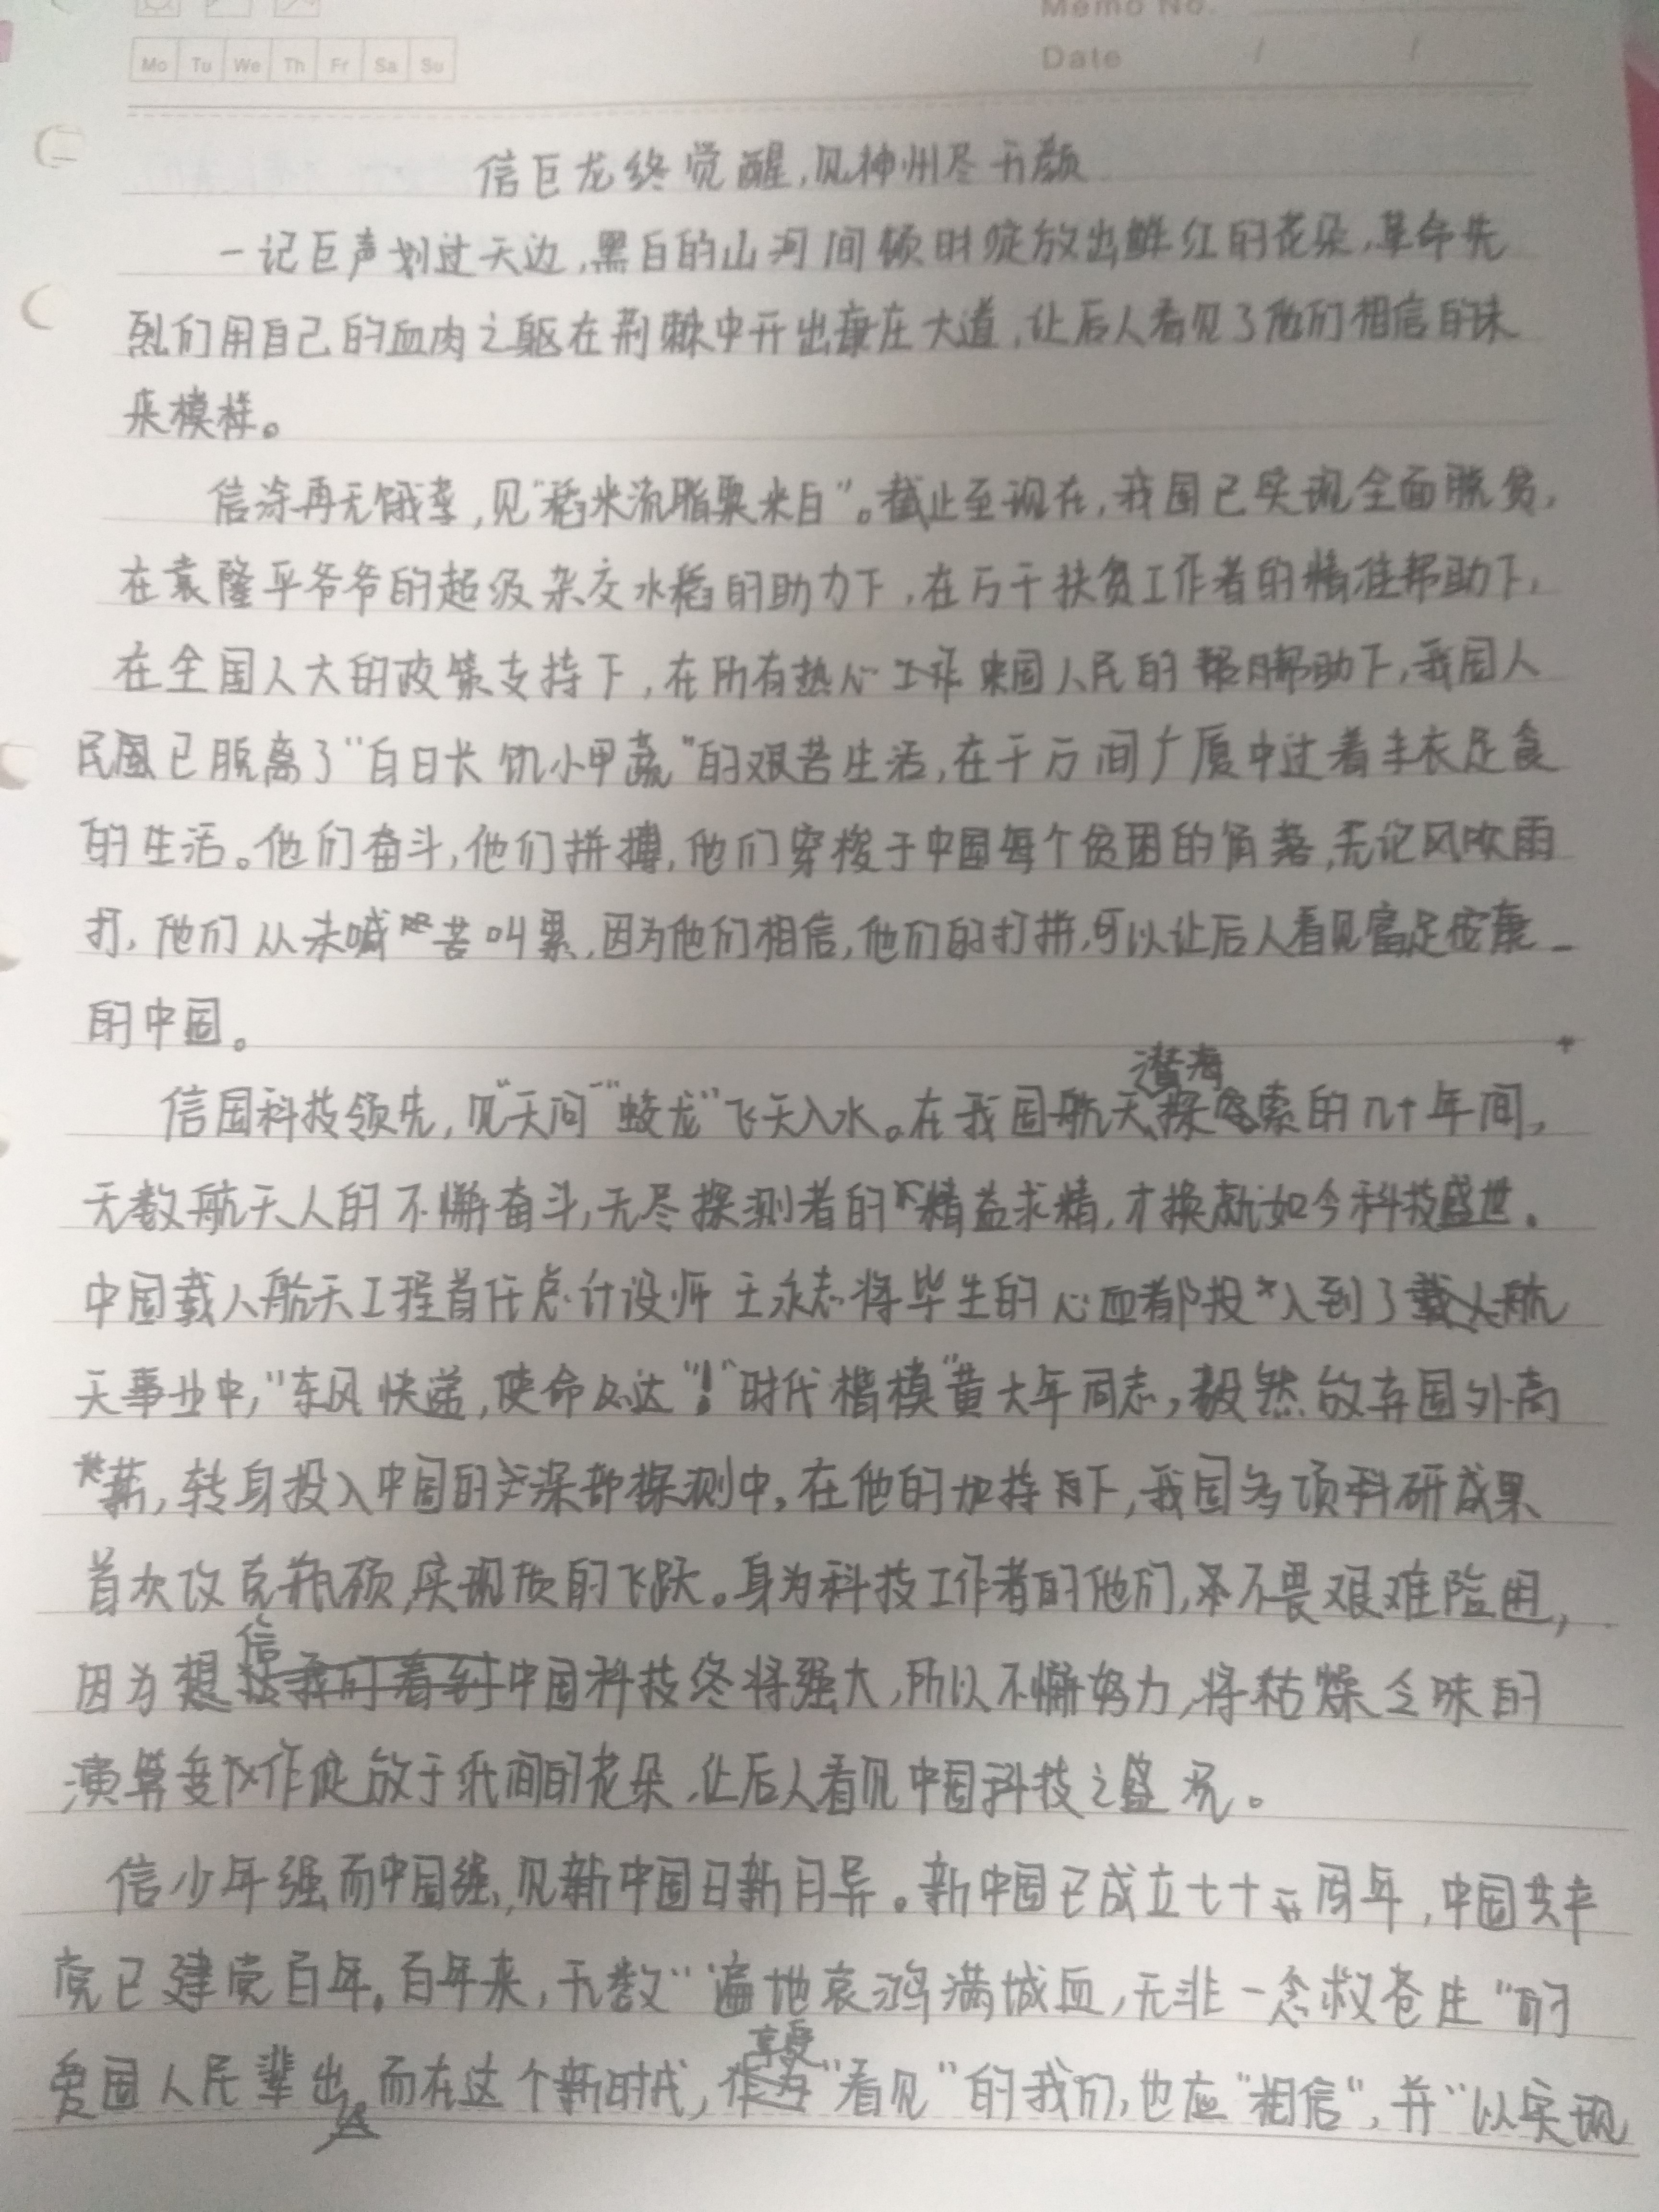 Memo No.
Mo Tu We Th Fr Sa Su
Date / /
信巨龙终觉醒,见神州尽开颜
一记巨声划过天边,黑白的山河间顿时绽放出鲜红的花朵,革命先
烈们用自己的血肉之躯在荆棘中开出康庄大道,让后人看见了他们相信的未
来模样。
信涂再无饿莩,见“稻米流脂粟米白”。截止至现在,我国已实现全面脱贫,
在袁隆平爷爷的超级杂交水稻的助力下,在万千扶贫工作者的精准帮助下,
在全国人大的政策支持下,在所有热心人民的帮助下,我国人
民已脱离了“白日长饥小甲蔬”的艰苦生活,在千万间广厦中过着丰衣足食
的生活。他们奋斗,他们拼搏,他们穿梭于中国每个贫困的角落,无论风吹雨
打,他们从未喊苦叫累,因为他们相信,他们的打拼,可以让后人看见富足安康
的中国。
信国科技领先,见“天问”“蛟龙”飞天入水。在我国航天潜海探索的几十年间,
无数航天人的不懈奋斗,无尽探测者的精益求精,才换就如今科技盛世。
中国载人航天工程首任总计设师王永志将毕生的心血都投入到了载人航
天事业中,“东风快递,使命必达”!“时代楷模”黄大年同志,毅然放弃国外高
薪,转身投入中国的深部探测中,在他的加持下,我国多项科研成果
首次攻克瓶颈,实现质的飞跃。身为科技工作者的他们,不畏艰难险困,
因为想信中国科技终将强大,所以不懈努力,将枯燥乏味的
演算变作绽放于纸间的花朵,让后人看见中国科技之盛况。
信少年强而中国强,见新中国日新月异。新中国已成立七十五周年,中国共产
党已建党百年。百年来,无数“遍地哀鸿满城血,无非一念救苍生”的
爱国人民辈出,而在这个新时代,享受“看见”的我们,也应“相信”,并“以实现